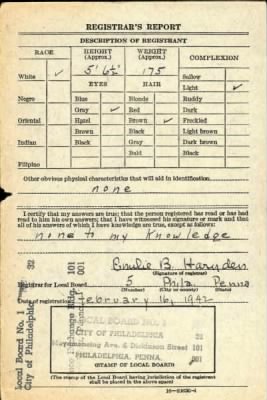 REGISTRAR'S REPORT
DESCRIPTION OF REGISTRANT
RACE
HEIGHT (Approx.)
WEIGHT (Approx.)
COMPLEXION
5' 6½"
175
White ✓
EYES
HAIR
Sallow
Light ✓
Negro
Blue
Blonde
Ruddy
Gray ✓
Red
Dark
Oriental
Hazel
Brown ✓
Freckled
Brown
Black
Light brown
Indian
Black
Gray
Dark brown
Bald
Black
Filipino
Other obvious physical characteristics that will aid in identification
none
I certify that my answers are true; that the person registered has read or has had
read to him his own answers; that I have witnessed his signature or mark and that
all of his answers of which I have knowledge are true, except as follows:
none to my knowledge
Emilie B. Harnden
(Signature of registrar)
Registrar for Local Board 5 Phila Penna
(Number) (City or county) (State)
Date of registration February 16, 1942
Local Board No. 1 32 101
City of Philadelphia 001
LOCAL BOARD NO. 1
CITY OF PHILADELPHIA 32
Moyamensing Ave. & Dickinson Street 101
PHILADELPHIA, PENNA. 001
STAMP OF LOCAL BOARD
(The stamp of the Local Board having jurisdiction of the registrant
shall be placed in the above space)